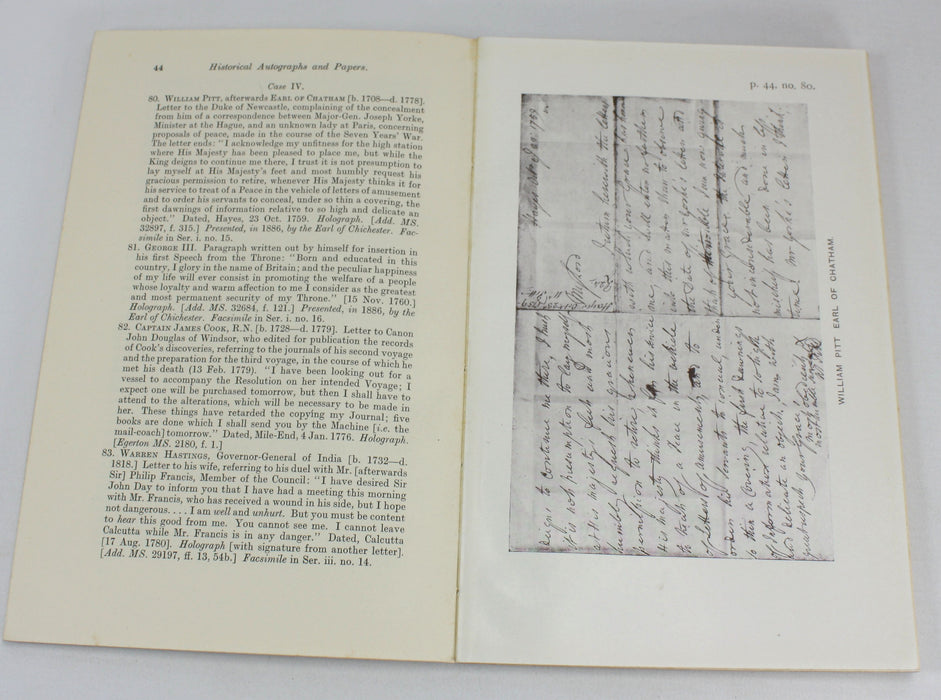 44 Historical Autographs and Papers.
Case IV.
80. WILLIAM PITT, afterwards EARL OF CHATHAM [b. 1708—d. 1778].
Letter to the Duke of Newcastle, complaining of the concealment
from him of a correspondence between Major-Gen. Joseph Yorke,
Minister at the Hague, and an unknown lady at Paris, concerning
proposals of peace, made in the course of the Seven Years' War.
The letter ends: "I acknowledge my unfitness for the high station
where His Majesty has been pleased to place me, but while the
King deigns to continue me there, I trust it is not presumption to
lay myself at His Majesty's feet and most humbly request his
gracious permission to retire, whenever His Majesty thinks it for
his service to treat of a Peace in the vehicle of letters of amusement
and to order his servants to conceal, under so thin a covering, the
first dawnings of information relative to so high and delicate an
object." Dated, Hayes, 23 Oct. 1759. Holograph. [Add. MS.
32897, f. 315.] Presented, in 1886, by the Earl of Chichester. Fac-
simile in Ser. i. no. 15.
81. GEORGE III. Paragraph written out by himself for insertion in
his first Speech from the Throne: "Born and educated in this
country, I glory in the name of Britain; and the peculiar happiness
of my life will ever consist in promoting the welfare of a people
whose loyalty and warm affection to me I consider as the greatest
and most permanent security of my Throne." [15 Nov. 1760.]
Holograph. [Add. MS. 32684, f. 121.] Presented, in 1886, by the
Earl of Chichester. Facsimile in Ser. i. no. 16.
82. CAPTAIN JAMES COOK, R.N. [b. 1728—d. 1779]. Letter to Canon
John Douglas of Windsor, who edited for publication the records
of Cook's discoveries, referring to the journals of his second voyage
and the preparation for the third voyage, in the course of which he
met his death (13 Feb. 1779). "I have been looking out for a
vessel to accompany the Resolution on her intended Voyage; I
expect one will be purchased tomorrow, but then I shall have to
attend to the alterations, which will be necessary to be made in
her. These things have retarded the copying my Journal; five
books are done which I shall send you by the Machine [i.e. the
mail-coach] tomorrow." Dated, Mile-End, 4 Jan. 1776. Holograph.
[Egerton MS. 2180, f. 1.]
83. WARREN HASTINGS, Governor-General of India [b. 1732—d.
1818.] Letter to his wife, referring to his duel with Mr. [afterwards
Sir] Philip Francis, Member of the Council: "I have desired Sir
John Day to inform you that I have had a meeting this morning
with Mr. Francis, who has received a wound in his side, but I hope
not dangerous. . . . I am well and unhurt. But you must be content
to hear this good from me. You cannot see me. I cannot leave
Calcutta while Mr. Francis is in any danger." Dated, Calcutta
[17 Aug. 1780]. Holograph [with signature from another letter].
[Add. MS. 29197, ff. 13, 54b.] Facsimile in Ser. iii. no. 14.
p. 44. no. 80.
My Lord
I return herewith the letter
with which your Grace
me, and will enter no farther
into this matter than to observe
the Date of
your Grace
not inconsiderable as
mischief has been done in
time
deigns to continue me there, I trust
it is not presumption to lay myself
at His Majesty's feet and most
humbly request his gracious
permission to retire, whenever
His Majesty thinks it for his service
to treat of a Peace in the vehicle
of letters of amusement and to
order his servants to conceal, under
so thin a Covering, the first dawnings
of information relative to so high
and delicate an object. I am with
great respect your Grace's
WILLIAM PITT EARL OF CHATHAM.